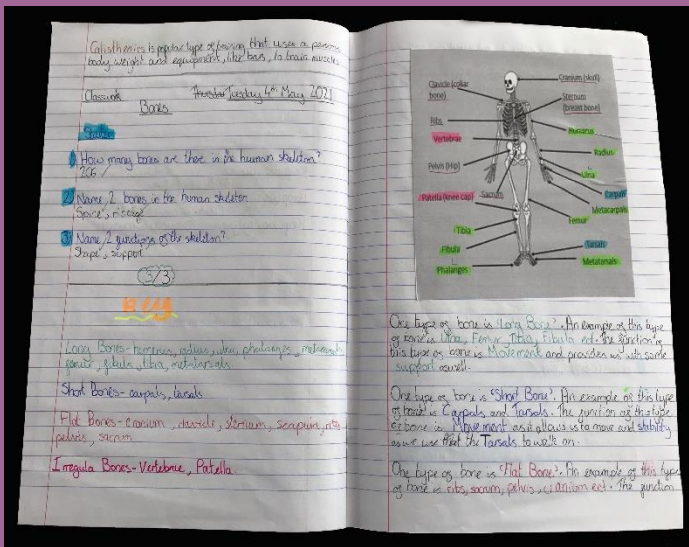 Calisthenics is popular type of training that uses a persons
body weight and equipment, like bars, to train muscles
Classwork Tuesday 4th May 2021
Bones
1 How many bones are there in the human skeleton?
206
2 Name, 2 bones in the human skeleton
3 Name, 2 functions of the skeleton?
Shape, support
3/3
KEY
Long Bones- humerus, radius, ulna, phalanges, metacarpals
femur, fibula, tibia, metatarsals
Short Bones- carpals, tarsals
Flat Bones- cranium, clavicle, sternum, scapula, ribs
pelvis, sacrum
Irregula Bones- Vertebrae, Patella
Clavicle (collar
bone)
Ribs
Vertebrae
Pelvis (Hip)
Patella (knee cap)
Sacrum
Tibia
Fibula
Phalanges
Cranium (skull)
Sternum
(breast bone)
Humerus
Radius
Ulna
Carpals
Metacarpals
Femur
Tarsals
Metatarsals
One type of bone is 'Long Bone'. An example of this type
of bone is Ulna, Femur, Tibia, Fibula ect. The function of
this type of bone is Movement and provides us with some
support aswell.
One type of bone is 'Short Bone'. An example of this type
of bone is Carpals and Tarsals. The function of this type
of bone is Movement as it allows us to move and stability
as we use the Tarsals to walk on.
One type of bone is 'Flat Bone'. An example of this type
of bone is ribs, sacrum, pelvis, cranium ect. The function